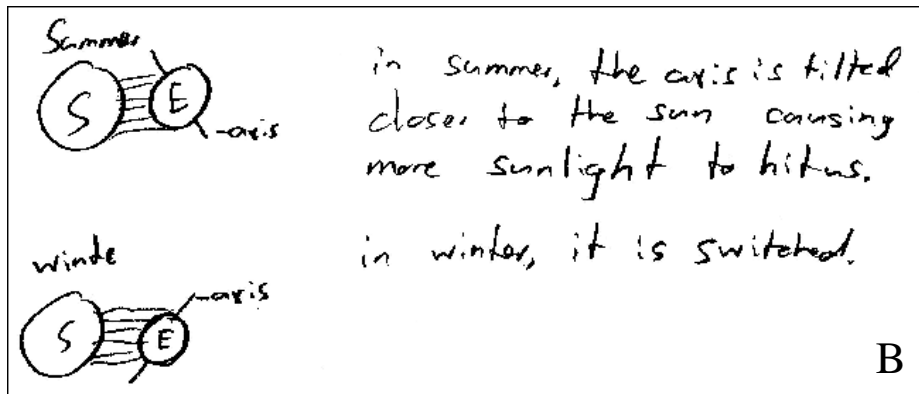 Summer
S E
-axis
in summer, the axis is tilted
closer to the sun causing
more sunlight to hit us.
in winter, it is switched.
winte
-axis
S E
B